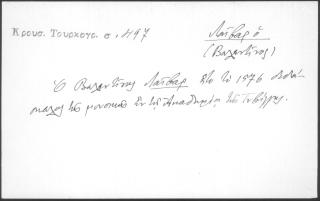 Κρουσ. Τουρκογρ. σ. 497
Λαΐβαρ ὁ
(Βαλεντῖνος)
Ὁ Βαλεντῖνος Λαΐβαρ ἦτο τῷ 1576 διδά-
σκαλος τῆς μουσικῆς ἐν τῇ Ἀκαδημίᾳ τῆς Τυβίγγης.